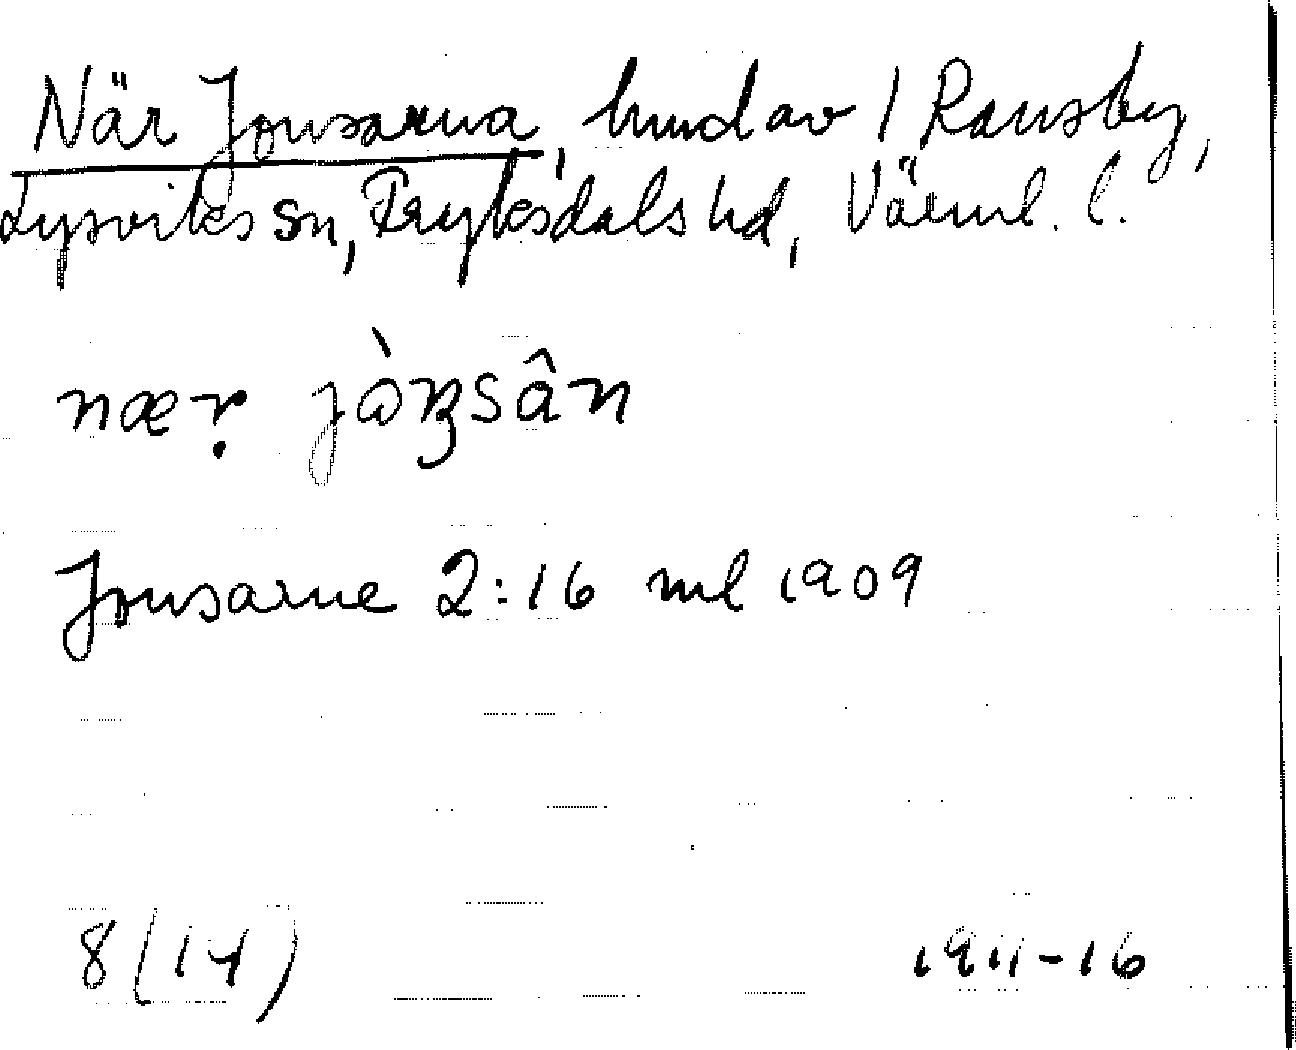 När Jonsarna, hmd av 1 Ransby,
Lysviks sn, Fryksdals hd, Värml. l.
nær̤ jòn̤sân
Jonsarne 2:16 ml 1909
8 (14)
1911-16